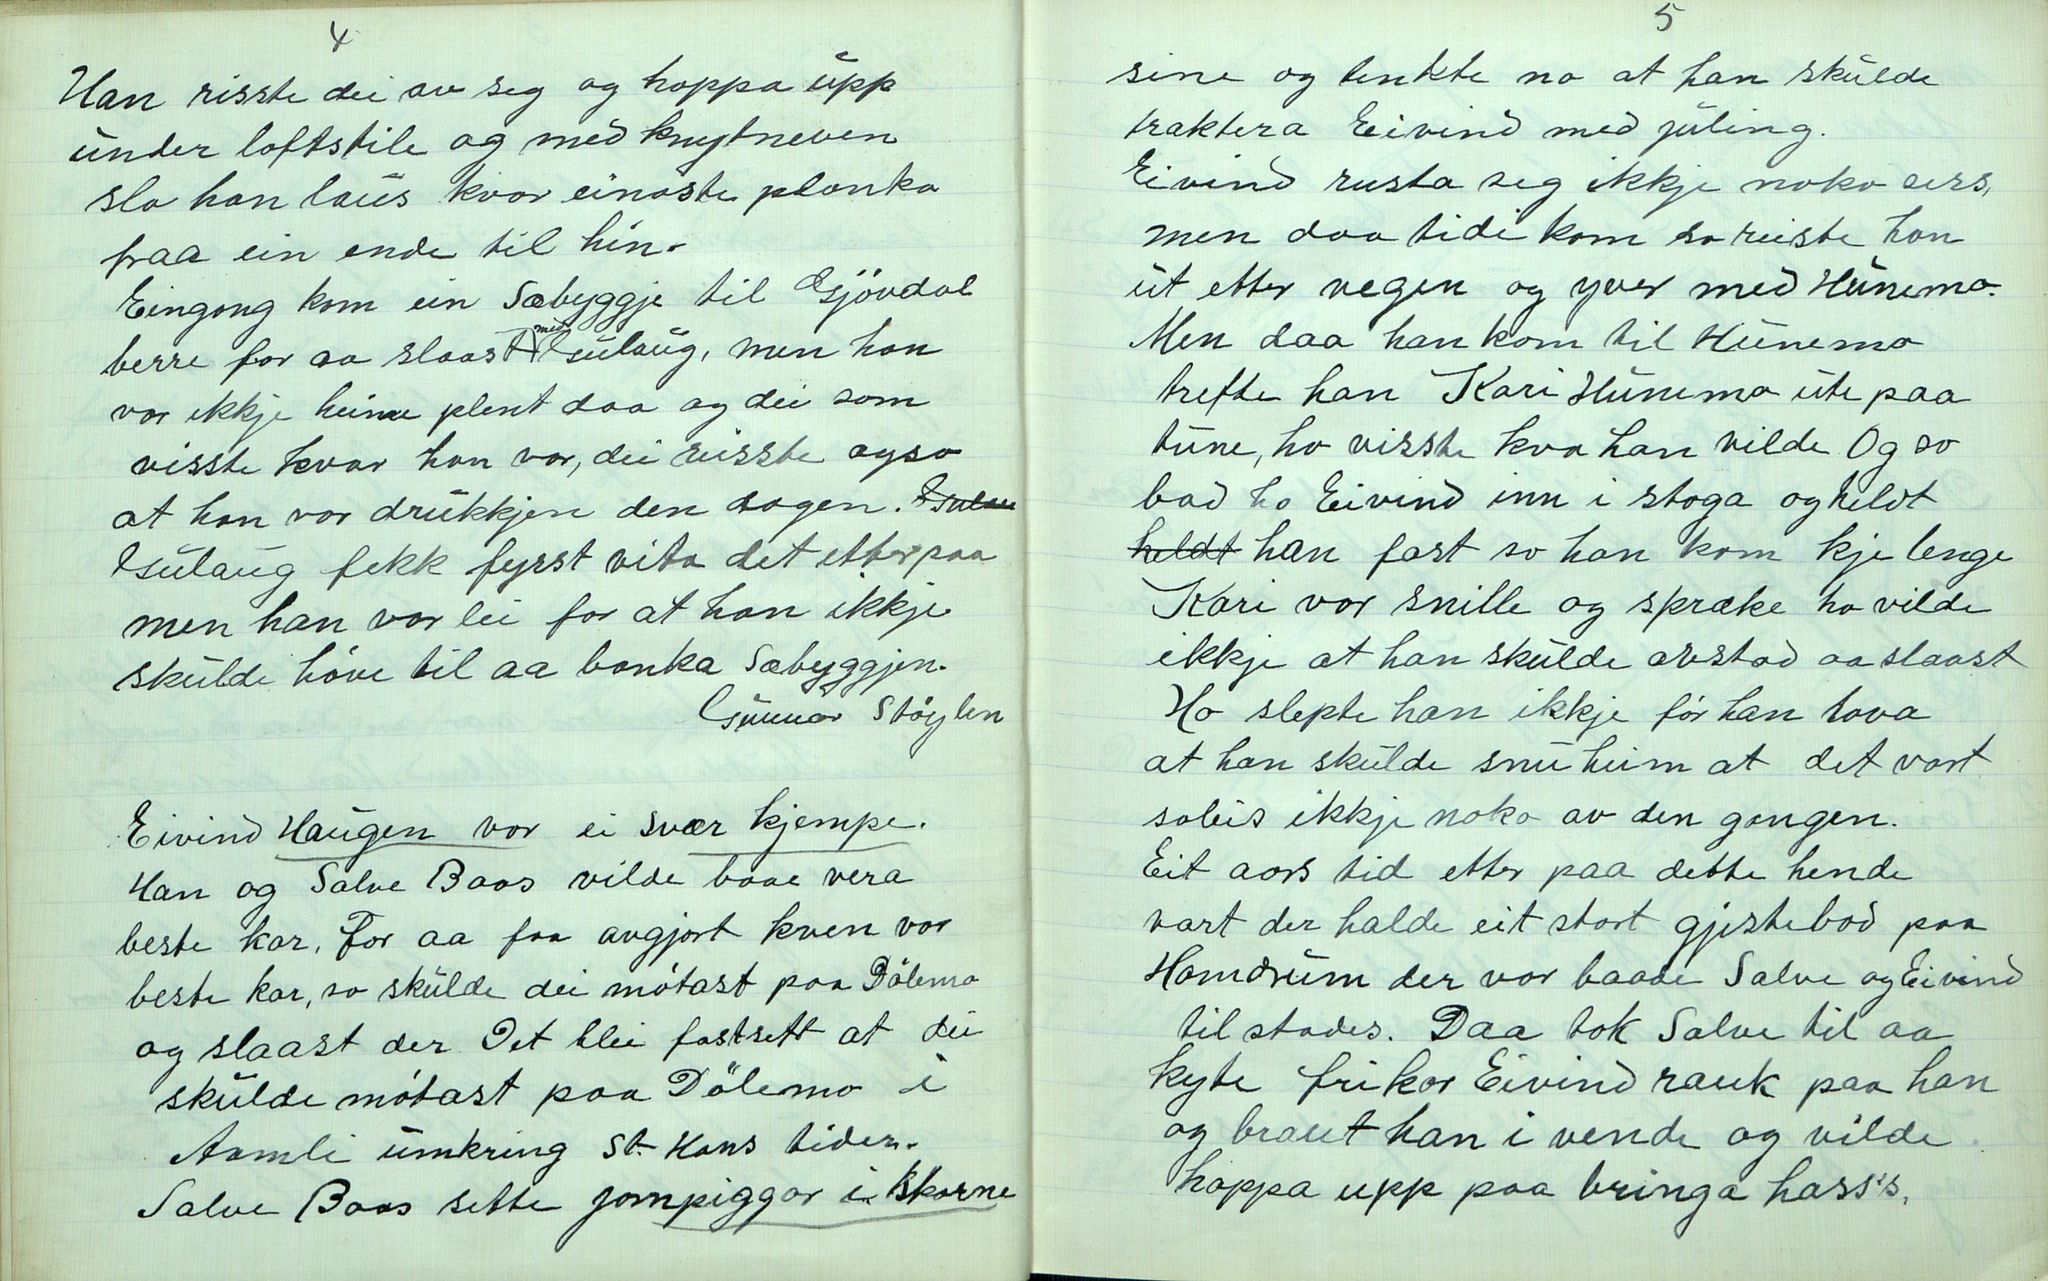 4
Han risste dei av seg og hoppa upp
under loftstile og med knytneven
slo han laus kvar einaste planka
fraa ein ende til hin.
Eingong kom ein Sæbyggje til Gjövdal
berre for aa slaast med Gulaug, men han
var ikkje heime plent daa og dei som
visste kvar han var, dei reisste ogso
at han var drukkjen den dagen.
Gulaug fekk fyrst vita det etterpaa
men han var lei for at han ikkje
skulde höve til aa banka Sæbyggjen.
Gunnar Stöylen
Eivind Haugen var ei svær kjempe.
Han og Salve Baas vilde baae vera
beste kar. For aa faa avgjort kven var
beste kar, so skulde dei mötast paa Dölemo
og slaast der. Det blei fastsett at dei
skulde mötast paa Dölemo i
Aamli umkring St. Hans tider.
Salve Baas sette jarnpiggar i skorne
5
sine og tenkte no at han skulde
traktera Eivind med juling.
Eivind rusta seg ikkje noko ærs,
men daa tidi kom so reiste han
ut etter vegen og yver med Hunemo.
Men daa han kom til Hunemo
trefte han Kari Hunemo ute paa
tune, ho visste kva han vilde Og so
bad ho Eivind inn i stoga og heldt
heldt han fast so han kom kje lenge
Kari var snille og spræke ho vilde
ikkje at han skulde avstad aa slaast
Ho slepte han ikkje för han lova
at han skulde snu heim at det vart
soleis ikkje noko av den gongen.
Eit aars tid etter paa dette hende
vart der halde eit stort gjestebod paa
Hamdrum der var baade Salve og Eivind
til stades. Daa tok Salve til aa
kyte frikor Eivind rauk paa han
og braut han i vende og vilde
hoppa upp paa bringa hass's.